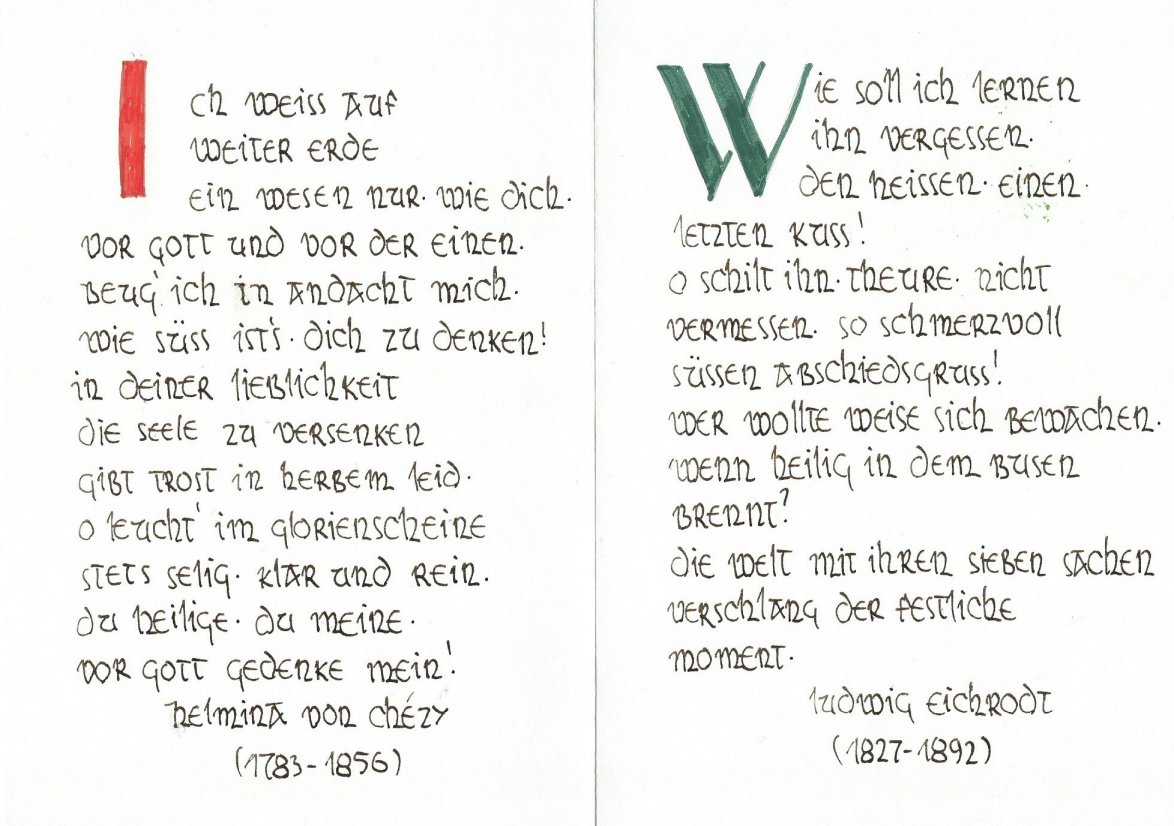 Ich weiss auf
weiter erde
ein wesen nur· wie dich·
vor gott und vor der einen·
beug' ich in andacht mich·
wie süss ist's· dich zu denken!
in deiner lieblichkeit
die seele zu versenken
gibt trost in herbem leid·
o leucht' im glorienscheine
stets selig· klar und rein·
du heilige· du meine·
vor gott gedenke mein!
helmina von chézy
(1783-1856)
Wie soll ich lernen
ihn vergessen·
den heissen· einen·
letzten kuss!
o schilt ihn· theure· nicht
vermessen· so schmerzvoll
süssen abschiedsgruss!
wer wollte weise sich bewachen·
wenn heilig in dem busen
brennt?
die welt mit ihren sieben sachen
verschlang der festliche
moment·
ludwig eichrodt
(1827-1892)